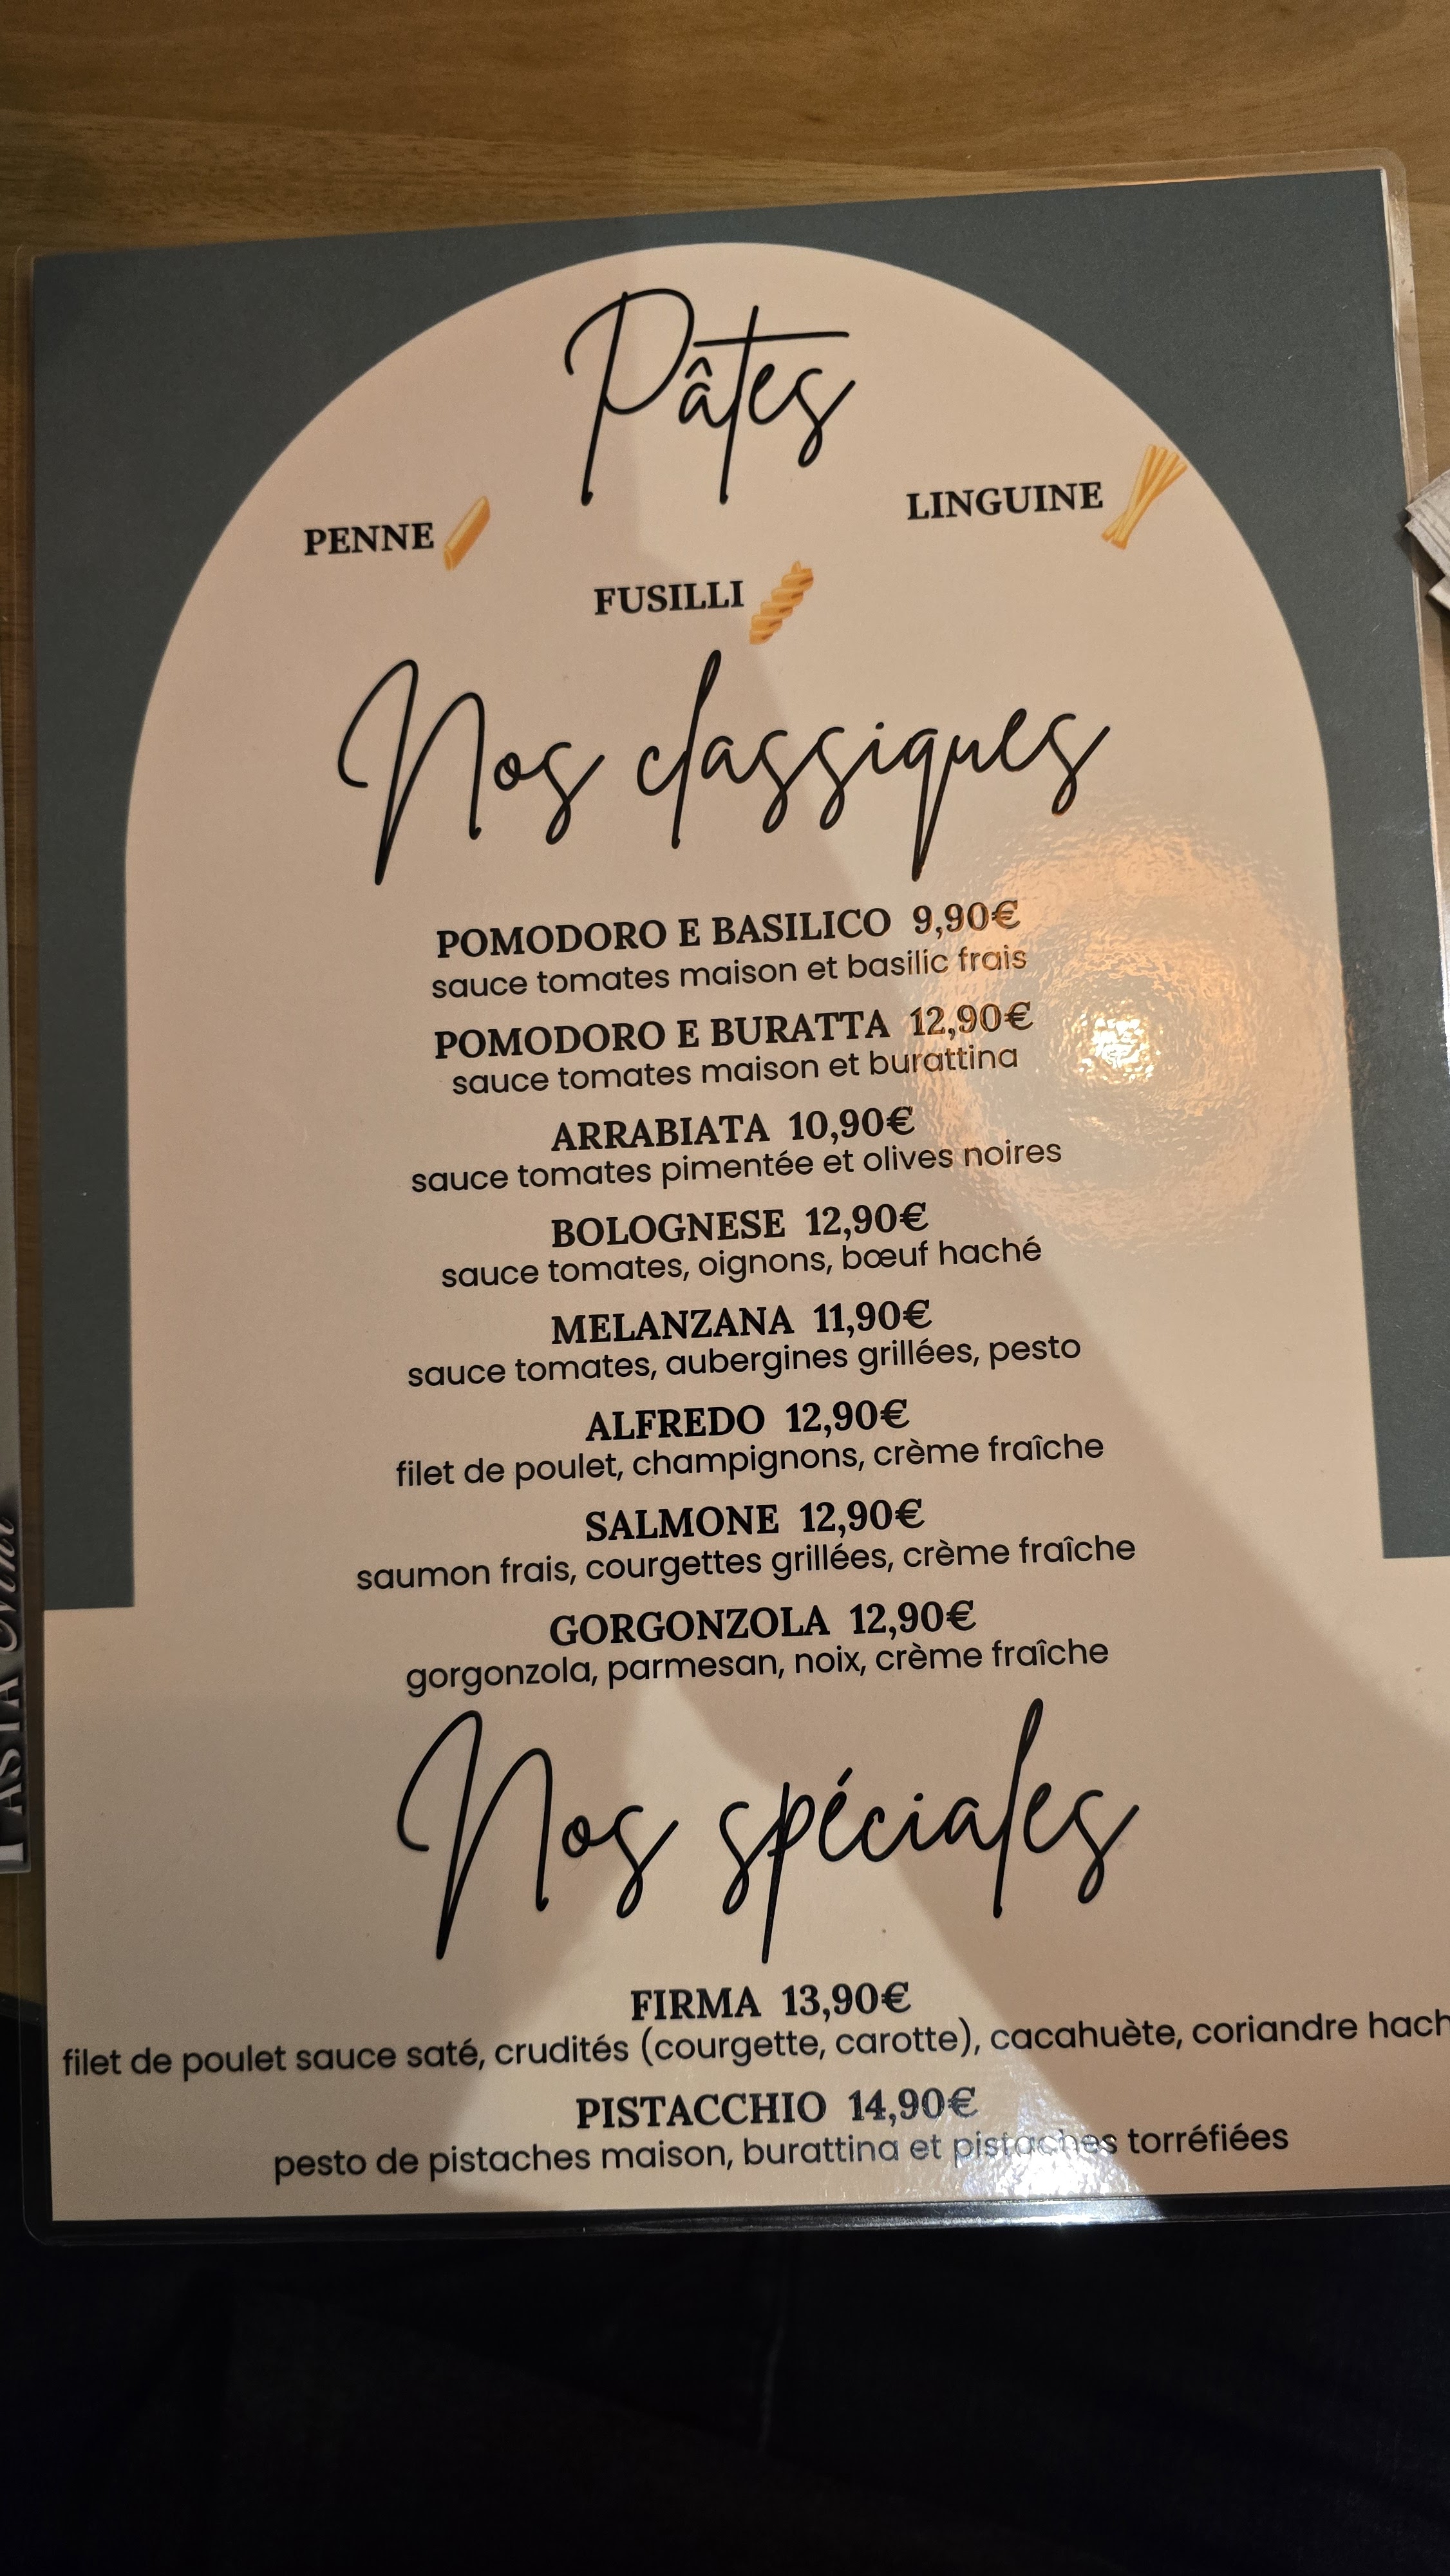 Pâtes
PENNE
LINGUINE
FUSILLI
Nos classiques
POMODORO E BASILICO 9,90€
sauce tomates maison et basilic frais
POMODORO E BURATTA 12,90€
sauce tomates maison et burattina
ARRABIATA 10,90€
sauce tomates pimentée et olives noires
BOLOGNESE 12,90€
sauce tomates, oignons, bœuf haché
MELANZANA 11,90€
sauce tomates, aubergines grillées, pesto
ALFREDO 12,90€
filet de poulet, champignons, crème fraîche
SALMONE 12,90€
saumon frais, courgettes grillées, crème fraîche
GORGONZOLA 12,90€
gorgonzola, parmesan, noix, crème fraîche
Nos spéciales
FIRMA 13,90€
filet de poulet sauce saté, crudités (courgette, carotte), cacahuète, coriandre hach
PISTACCHIO 14,90€
pesto de pistaches maison, burattina et pistaches torréfiées
PASTA